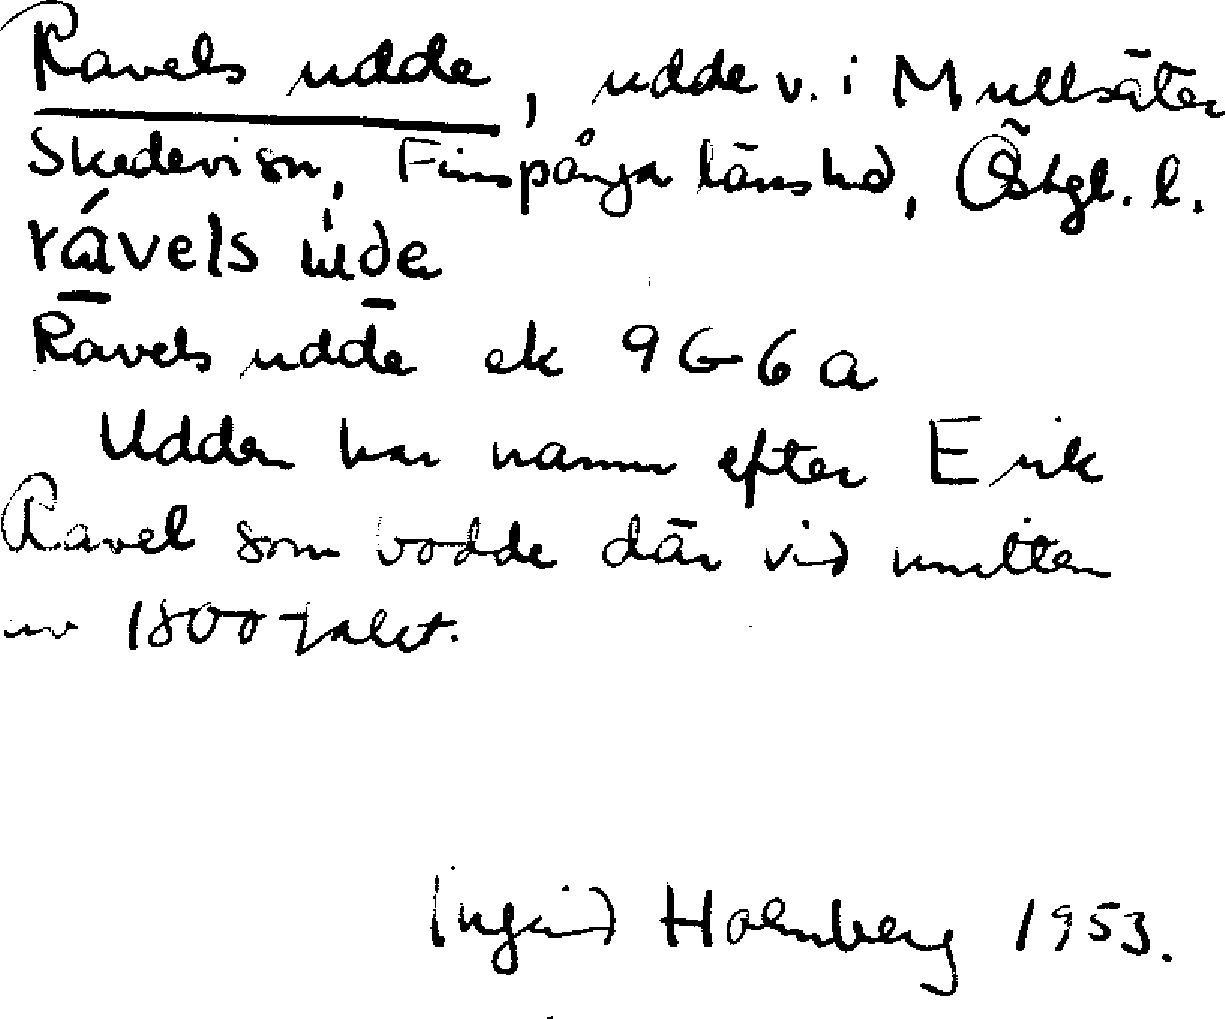 Ravels udde, udde v. i Mullsäter
Skedevi sn, Finspånga länshd, Östgl. l.
rávels ùde
Ravels udde ek 9 G 6 a
Udden har namn efter Erik
Ravel som bodde där vid mitten
av 1800-talet.
Ingrid Holmberg 1953.